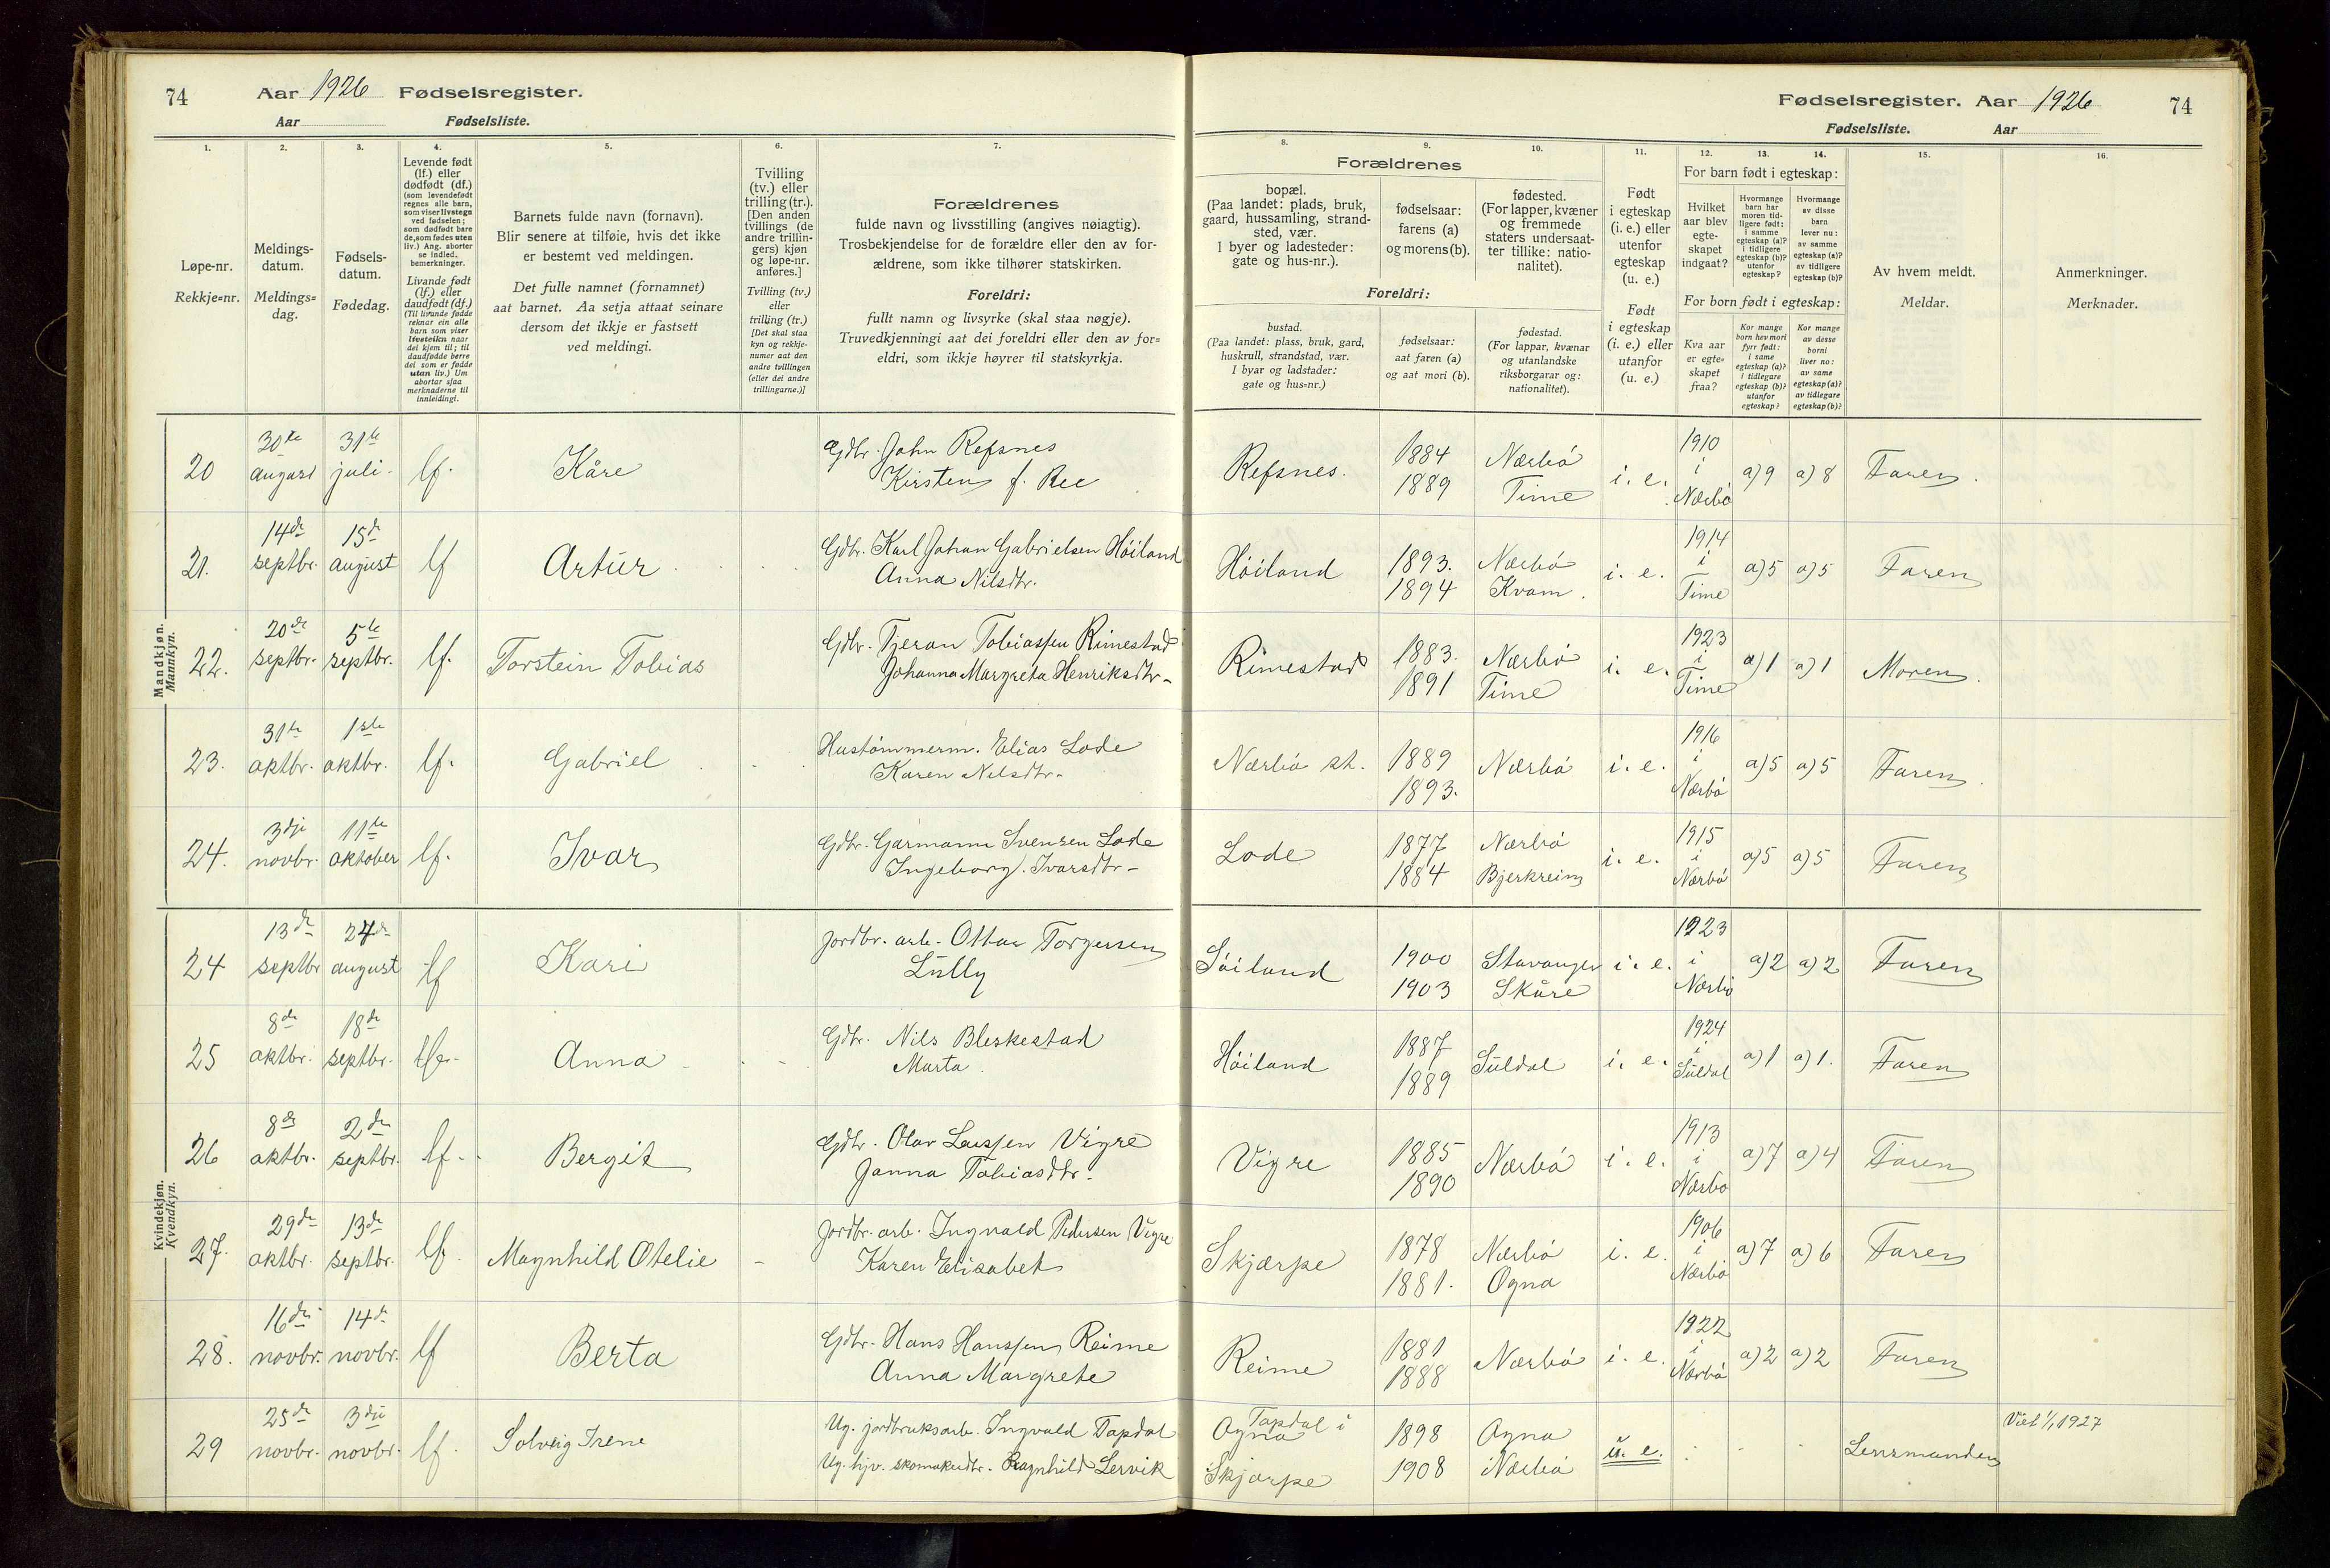 74 Aar 1926 Fødselsregister.
Aar Fødselsliste.
Fødselsregister. Aar 1926 74
Fødselsliste. Aar
1. 2. 3. 4. 5. 6. 7.
Løpe-nr.
Rekkje=nr.
Meldings-
datum.
Meldings=
dag.
Fødsels-
datum.
Fødedag.
Levende født
(lf.) eller
dødfødt (df.)
(som levendefødt
regnes alle barn,
som viser livstegn
ved fødselen;
som dødfødt bare
de, som fødes uten
liv.) Ang. aborter
se indled.
bemerkninger.
Livande født
(lf.) eller
daudfødt (df.)
(Til livande fødde
reknar ein alle
barn som viser
livsteikn naar
dei kjem til; til
daudfødde berre
dei som er fødde
utan liv.) Um
abortar sjaa
merknaderne til
innleidingi.
Barnets fulde navn (fornavn).
Blir senere at tilføie, hvis det ikke
er bestemt ved meldingen.
Det fulle namnet (fornamnet)
aat barnet. Aa setja attaat seinare
dersom det ikkje er fastsett
ved meldingi.
Tvilling
(tv.) eller
trilling (tr.).
[Den anden
tvillings (de
andre trillin-
gers) kjøn
og løpe-nr.
anføres.]
Tvilling (tv.)
eller
trilling (tr.)
[Det skal staa
kyn og rekkje-
numer aat den
andre tvillingen
(eller dei andre
trillingarne.)]
Forældrenes
fulde navn og livsstilling (angives nøiagtig).
Trosbekjendelse for de forældre eller den av for-
ældrene, som ikke tilhører statskirken.
Foreldri:
fullt namn og livsyrke (skal staa nøgje).
Truvedkjenningi aat dei foreldri eller den av for=
eldri, som ikkje høyrer til statskyrkja.
8. 9. 10. 11. 12. 13. 14. 15. 16.
Forældrenes
bopæl.
(Paa landet: plads, bruk,
gaard, hussamling, strand-
sted, vær.
I byer og ladesteder:
gate og hus-nr.).
fødselsaar:
farens (a)
og morens (b).
fødested.
(For lapper, kvæner
og fremmede
staters undersaat-
ter tillike: natio-
nalitet).
Foreldri:
bustad.
(Paa landet: plass, bruk, gard,
huskrull, strandstad, vær.
I byar og ladstader:
gate og hus=nr.)
fødselsaar:
aat faren (a)
og aat mori (b).
fødestad.
(For lappar, kvænar
og utanlandske
riksborgarar og:
nationalitet).
Født
i egteskap
(i. e.) eller
utenfor
egteskap
(u. e.)
Født
i egteskap
(i. e.) eller
utanfor
(u. e.)
For barn født i egteskap:
Hvilket
aar blev
egte-
skapet
indgaat?
Hvormange
barn har
moren tid-
ligere født:
i samme
egteskap (a)?
i tidligere
egteskap (b)?
utenfor
egteskap?
Hvormange
av disse
barn
lever nu:
av samme
egteskap (a)?
av tidligere
egteskap (b)?
For born født i egteskap:
Kva aar
er egte-
skapet
fraa?
Kor mange
born hev mori
fyrr født:
i same
egteskap (a)?
i tidlegare
egteskap (b)?
utanfor
egteskap?
Kor mange
av desse
borni
liver no:
av same
egteskap (a)?
av tidlegare
egteskap (b)?
Av hvem meldt.
Meldar.
Anmerkninger.
Merknader.
Mandkjøn.
Mannkyn.
20 30te august 31te juli. lf. Kåre Gdbr. John Refsnes Refsnes. 1884 Nærbö i. e. 1910 i Nærbö a) 9 a) 8 Faren.
Kirsten f. Ree 1889 Time
21. 14de septbr. 15de august lf Artur Gdbr. Karl Johan Gabrielsen Höiland Höiland 1893. Nærbö i. e. 1914 i Time a) 5 a) 5 Faren
Anna Nilsdtr. 1894 Kvam.
22. 20de septbr. 5te septbr. lf. Torstein Tobias Gdbr. Tjeran Tobiassen Rimestad Rimestad 1883. Nærbö i. e. 1923 i Time a) 1 a) 1 Moren.
Johanna Margreta Henriksdtr. 1891 Time
23. 31te oktbr. 1ste oktbr. lf. Gabriel Hustömmerm. Elias Lode Nærbö st. 1889 Nærbö i. e. 1916 i Nærbö a) 5 a) 5 Faren.
Karen Nilsdtr. 1893.
24. 3dje novbr. 11te oktober lf. Ivar Gdbr. Garmann Svensen Lode Lode 1877 Nærbö i. e. 1915 i Nærbö a) 5 a) 5 Faren
Ingeborg Ivarsdtr. 1884 Bjerkreim
Kvindekjøn.
Kvendkyn.
24 13de septbr 24de august lf Kari Jordbr. arb. Ottar Torgersen Söiland 1900 Stavanger i. e. 1923 i Nærbö a) 2 a) 2 Faren
Lully 1903 Skåre
25 8de oktbr. 18de septbr. lf. Anna Gdbr. Nils Bleskestad Höiland 1887 Suldal i. e. 1924 i Suldal a) 1 a) 1. Faren
Marta. 1889
26 8de oktbr. 2den septbr. lf. Bergit Gdbr. Olav Larssen Vigre Vigre 1885 Nærbö i. e. 1913 i Nærbö a) 7 a) 4 Faren
Janna Tobiasdtr. 1890
27. 29de oktbr. 13de septbr. lf. Magnhild Otelie Jordbr. arb. Ingvald Pedersen Vigre Skjærpe 1878 Nærbö i. e. 1906 i Nærbö a) 7 a) 6 Faren
Karen Elisabet 1881. Ogna
28. 16de novbr. 14de novbr. lf Berta Gdbr. Hans Hanssen Reime Reime 1881 Nærbö i. e. 1922 i Nærbö a) 2 a) 2 Faren
Anna Margrete 1888
29 25de novbr. 3dje novbr. lf. Solveig Irene Ug. jordbruksarb. Ingvald Tapdal Tapdal i Ogna 1898 Ogna u. e. Lensmanden Viet 1/1 1927
Ug. hjv. skomakerdtr. Ragnhild Lervik Skjærpe 1908 Nærbö